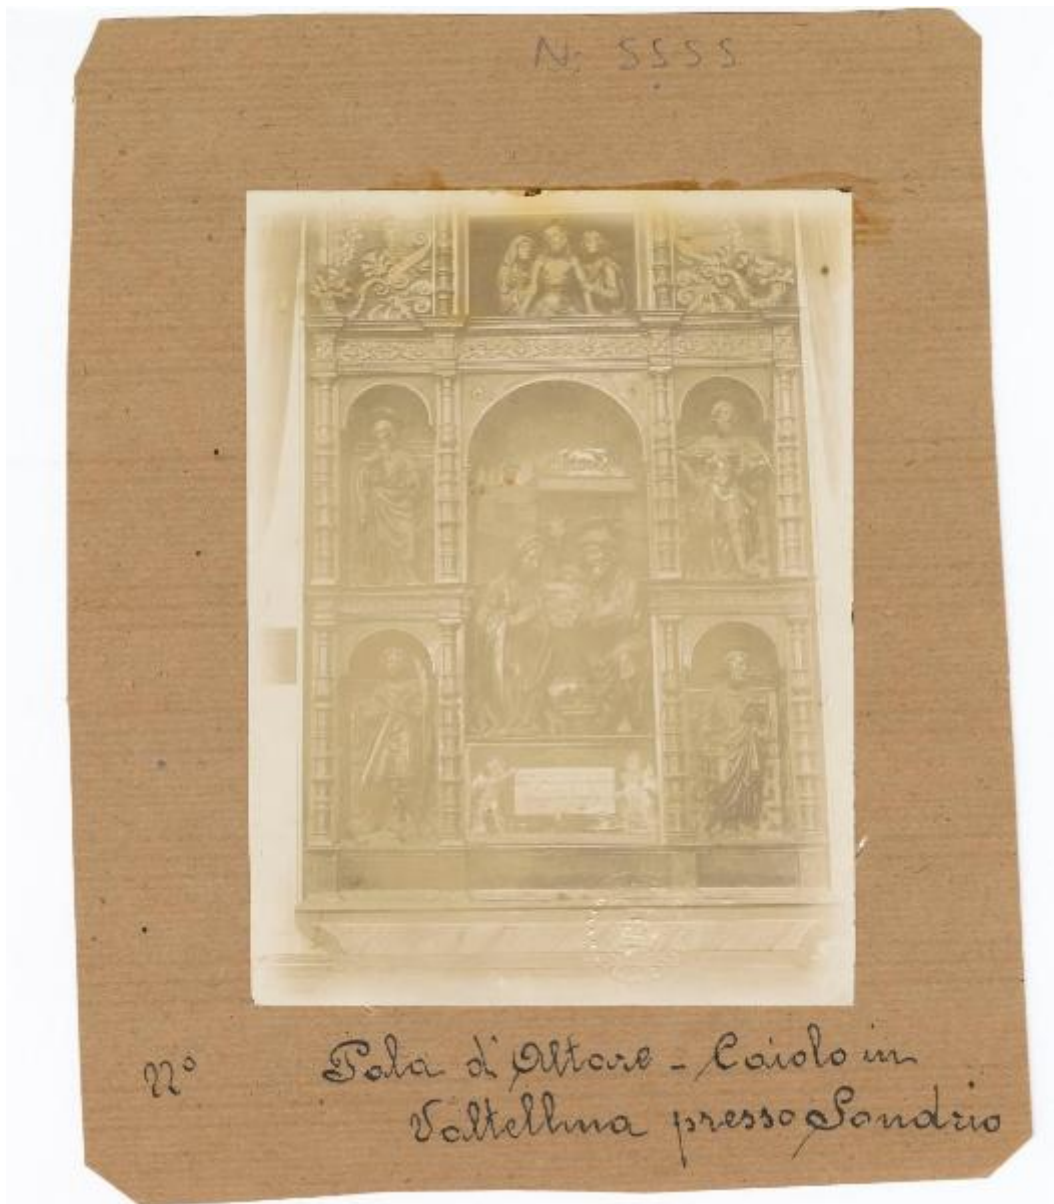 N: 5555
n°
Pala d'Altare - Caiolo in
Valtellina presso Sondrio